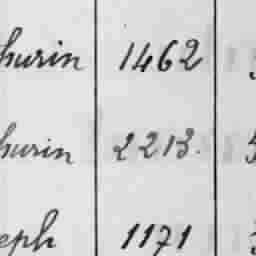 hurin 1462
hurin 2213.
eph 1171